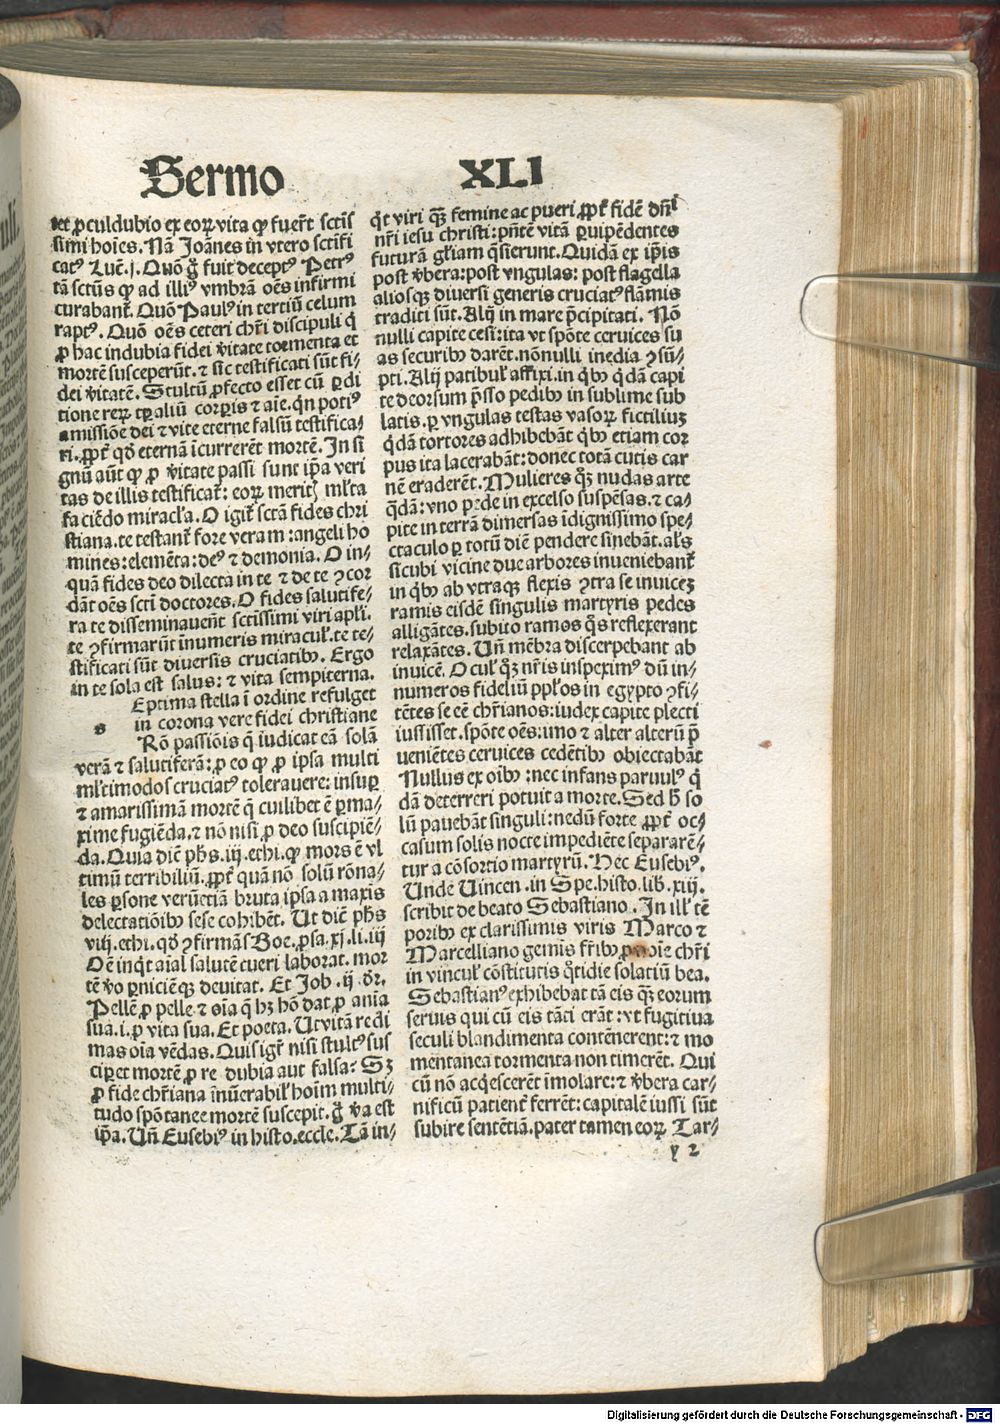 Sermo XLI
tet ꝓculdubio ex eoꝝ vita qꝫ fuer̄t sctīs
simi hoīes. Nā Joānes in vtero sctifi
catꝰ Luc̄.j. Quō gͥ fuit deceptꝰ Petrꝰ
tā sctūs qꝫ ad illiꝰ vmbrā oēs infirmi
curabant̄. Quō Paulꝰ in tertiū celum
raptꝰ. Quō oēs ceteri chr̄i discipuli qͥ
ꝓ hac indubia fidei v̄itate tormenta et
mortē susceperūt. ⁊ sic testificati sūt fi⸗
dei v̄itatē. Stultū ꝓfecto esset cū ꝑdi
tione reꝝ tꝑaliū corꝑis ⁊ aīe. qn̄ potiꝰ
amissiōe dei ⁊ vite eterne falsū testifica⸗
ri. ꝓpt̄ qd̄ eternā īcurrerēt mortē. In si
gnū aūt qꝫ ꝓ v̄itate passi sunt ip̄a veri
tas de illis testificat̄: eoꝝ meritꝭ ml̄ta
faciēdo miracl̄a. O igit̄ sctā fides chri
stiana. te testant̄ fore veram: angeli ho
mines: elemēta: deꝰ ⁊ demonia. O in⸗
quā fides deo dilecta in te ⁊ de te ꝯcor
dāt oēs sctī doctores. O fides salutife⸗
ra te disseminauēnt sctissimi viri apl̄i.
te ꝯfirmarūt īnumeris miracul̄. te te⸗
stificati sūt diversis cruciatibꝫ. Ergo
in te sola est salus: ⁊ vita sempiterna.
Eptima stella ī ordine refulget
s in corona vere fidei christiane
Rō passiōis q̄ iudicat eā solā
verā ⁊ salutiferā: ꝓ eo qꝫ ꝓ ipsa multi
ml̄timodos cruciatꝰ tolerauere: insuꝑ
⁊ amarissimā mortē q̄ cuilibet ē ꝑma⸗
xime fugiēda. ⁊ nō nisi ꝓ deo suscipiē⸗
da. Quia diē ph̄s .iij. ethi. qꝫ mors ē vl
timū terribiliū. ꝓpt̄ quā nō solū rōna⸗
les ꝑsone verūetiā bruta ipsa a maxis
delectatiōibꝫ sese cohibēt. Ut diē ph̄s
viij. ethi. qd̄ ꝯfirmās Boe. ꝓsa. xj. li. iij
Oē inqͥt aīal salutē tueri laborat. mor
tē v̄o ꝑniciēqꝫ deuitat. Et Job .ij. dr̄.
Pellē ꝓ pelle ⁊ oīa q̄ hꝫ hō dat ꝓ anīa
sua. i. ꝓ vita sua. Et poeta. Ut vitā redi
mas oīa vēdas. Quis igr̄ nisi stultꝰ sus
ciꝑet mortē ꝓ re dubia aut falsa? Sꝫ
ꝓ fide chr̄iana īnūerabil̄ hoīm multi⸗
tudo spōtanee mortē suscepit. gͥ v̄a est
ip̄a. Uñ Eusebiꝰ in histo. eccle. Tā in⸗
qͥt viri qꝫ̄ femine ac pueri ꝓpt̄ fidē dn̄i
nr̄i iesu christi: pn̄tē vitā ꝑuipēdentes
futurā gl̄iam q̄sierunt. Quidā ex ip̄is
post v̄bera: post vngulas: post flagella
aliosqꝫ diversi generis cruciatꝰ flāmis
traditi sūt. Alij in mare p̄cipitati. Nō
nulli capite cesi: ita vt spōte ceruices su
as securibꝫ darēt. nōnulli inedia ꝯsū⸗
pti. Alij patibul̄ affixi. in qͥbꝫ qͥdā capi
te deorsum p̄sso pedibꝫ in sublime sub
latis. ꝑ vngulas testas vasoꝝ fictiliuꝫ
qͥdā tortores adhibebāt qͥbꝫ etiam cor
pus ita lacerabāt: donec totā cutis car
nē eraderēt. Mulieres qꝫ nudas arte
qͥdā: vno pede in excelso suspēsas. ⁊ ca⸗
pite in terrā dimersas īdignissimo spe⸗
ctaculo ꝑ totū diē pendere sinebāt. al̄s
sicubi vicine due arbores inueniebant̄
in qͥbꝫ ab vtraqꝫ flexis ꝯtra se inuiceꝫ
ramis eisdē singulis martyris pedes
alligātes. subito ramos qͦs reflexerant
relaxātes. Uñ mēbra discerpebant ab
inuicē. Ocul̄ qꝫ nr̄is inspeximꝰ dū in⸗
numeros fideliū ppl̄os in egypto ꝯfi⸗
tētes se eē chr̄ianos: iudex capite plecti
iussisset. spōte oēs: imo ⁊ alter alterū p̄
ueniētes ceruices cedētibꝫ obiectabāt
Nullus ex oibꝫ: nec infans paruulꝰ qͥ
dā deterreri potuit a morte. Sed h̄ so
lū pauebāt singuli: nedū forte ꝓpt̄ oc⸗
casum solis nocte impediēte separarē⸗
tur a cōsortio martyrū. Hec Eusebiꝰ.
Unde Uincen. in Spe. histo. lib. xiij.
scribit de beato Sebastiano. In ill̄ tē
poribꝫ ex clarissimis viris Marco ⁊
Marcelliano gemīs fr̄ibꝫ ꝓ noīe chr̄i
in vincul̄ cōstitutis qͦtidie solatiū bea.
Sebastianꝰ exhibebat tā eis qꝫ̄ eorum
seruis qui cū eis tāti erāt: vt fugitiua
seculi blandimenta contēnerent: ⁊ mo
mentanea tormenta non timerēt. Qui
cū nō acqͥescerēt īmolare: ⁊ v̄bera car⸗
nificū patient̄ ferrēt: capitalē iussi sūt
subire sentētiā. pater tamen eoꝝ Tar⸗
y 2
Digitalisierung gefördert durch die Deutsche Forschungsgemeinschaft - DFG